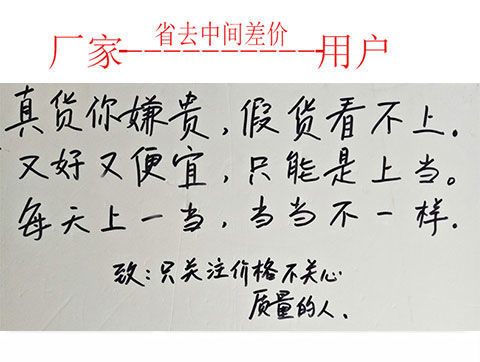 省去中间差价
厂家----------用户
真货你嫌贵，假货看不上。
又好又便宜，只能是上当。
每天上一当，当当不一样。
致：只关注价格不关心
质量的人。